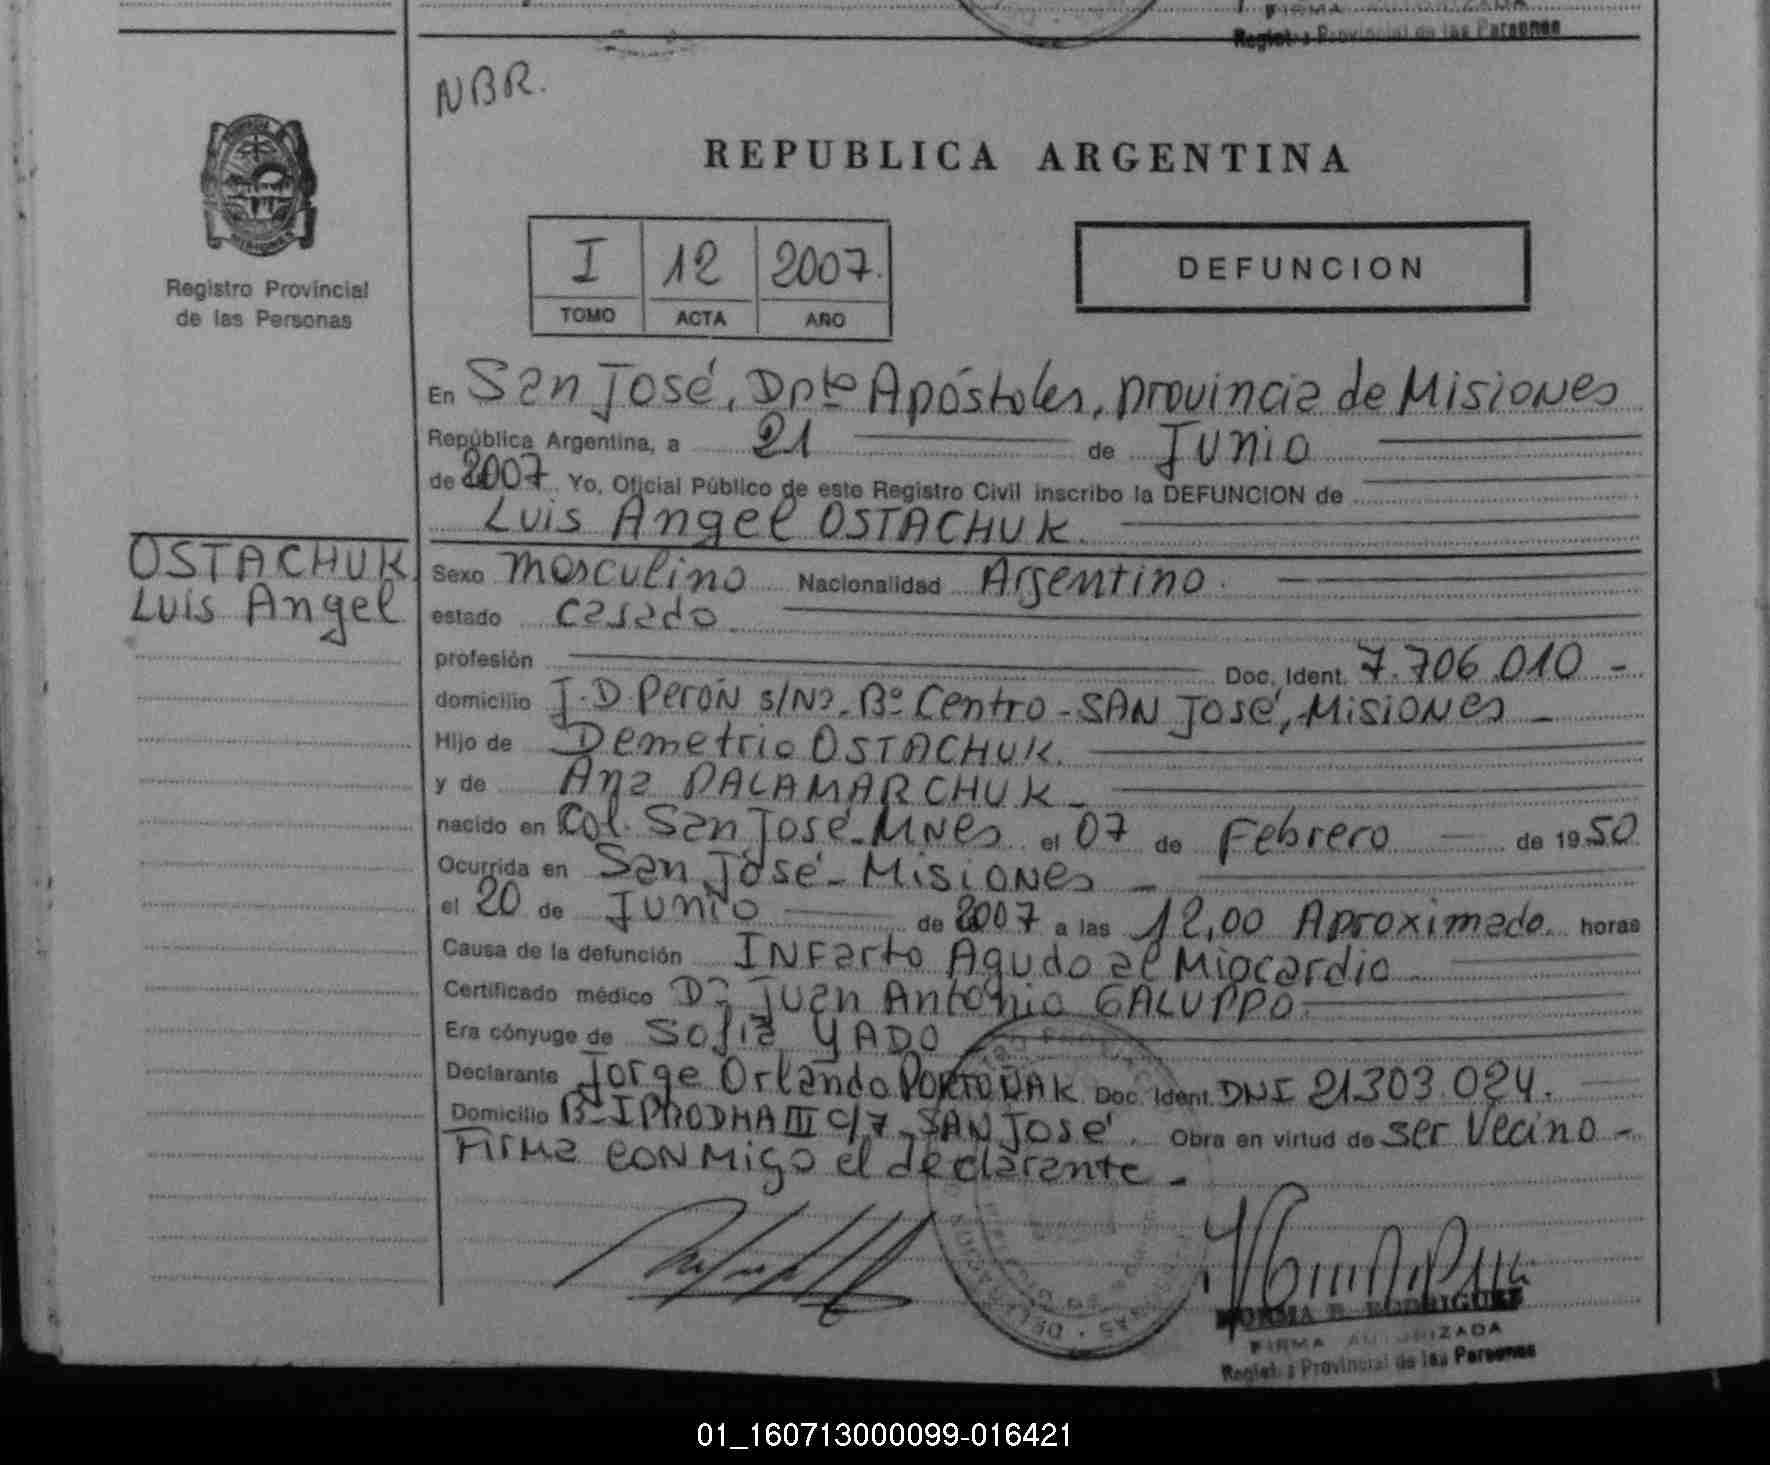 Registro Provincial de las Personas
NBR.
REPUBLICA ARGENTINA
Registro Provincial
de las Personas
I 12 2007.
TOMO ACTA AÑO
DEFUNCION
En San José, Dpto Apóstoles, provincia de Misiones
República Argentina, a 21 de Junio
de 2007 Yo, Oficial Público de este Registro Civil inscribo la DEFUNCION de
Luis Angel OSTACHUK.
OSTACHUK
Luis Angel
Sexo masculino Nacionalidad Argentino.
estado casado
profesión Doc. Ident. 7.706.010 -
domicilio J.D. Perón s/Nº. Bº Centro - SAN José, Misiones -
Hijo de Demetrio OSTACHUK.
y de Ana PALAMARCHUK -
nacido en Col. San José - Mnes el 07 de Febrero de 1950
Ocurrida en San José - Misiones -
el 20 de Junio de 2007 a las 12,00 Aproximado horas
Causa de la defunción INFarto Agudo al Miocardio
Certificado médico Dr Juan Antonio GALUPPO.
Era cónyuge de Sofia YADO
Declarante Jorge Orlando Doc. Ident. DNI 21303.024.
Domicilio Bº IPRODHA III C/7 - SAN José. Obra en virtud de ser Vecino -
Firma conmigo el declarante -
NORMA B. RODRIGUEZ
FIRMA AUTORIZADA
Registro Provincial de las Personas
01_160713000099-016421